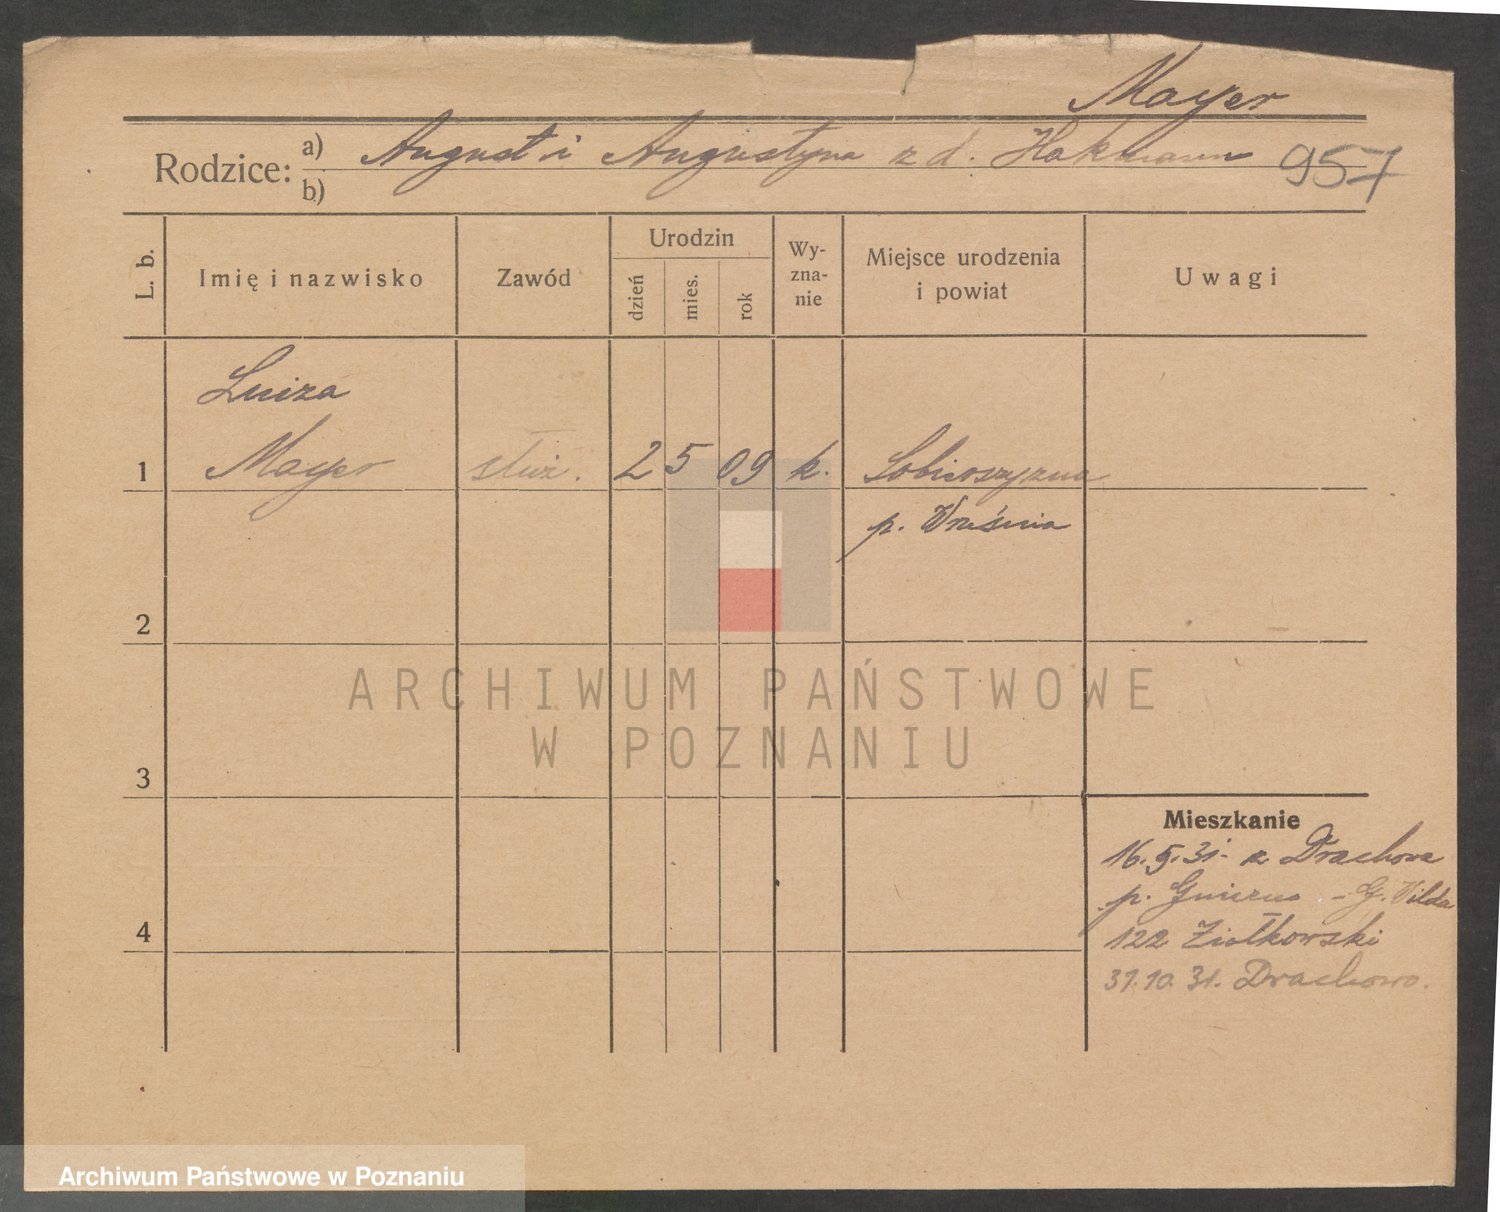 Mayer
Rodzice: a) August i Augustyna z d. Hakmann 957
b)
L. b. Imię i nazwisko Zawód Urodzin dzień mies. rok Wy-zna-nie Miejsce urodzenia i powiat Uwagi
Luiza
1 Mayer służ. 2 5 09 k. Sobierszyzna
p. Września
2
ARCHIWUM PAŃSTWOWE
W POZNANIU
3
Mieszkanie
16.5.31. z Drachowa
p. Gniezno - G. Wilda
4 122 Ziołkowski
31.10.31. Drachowo.
Archiwum Państwowe w Poznaniu